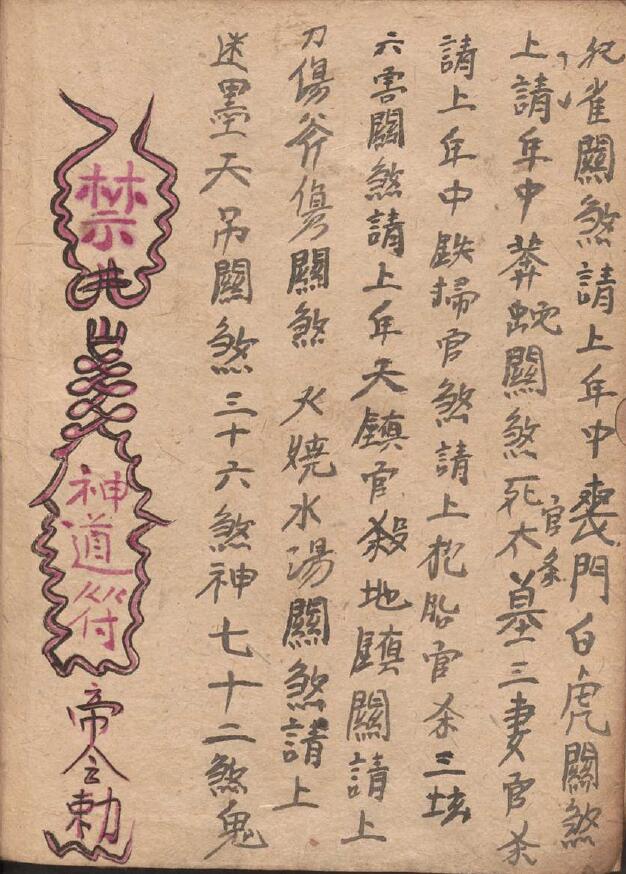 雀關煞請上年中喪門白虎關煞
上請年中莽蛇關煞死木墓三妻官杀
官条
請上年中鉄掃官煞請上抱胎官杀三坟
六害關煞請上年天鎮官殺地鎮關請上
刀傷斧傷關煞 火燒水湯關煞請上
迷墨天吊關煞三十六煞神七十二煞鬼
禁井
神道符
帝令勅